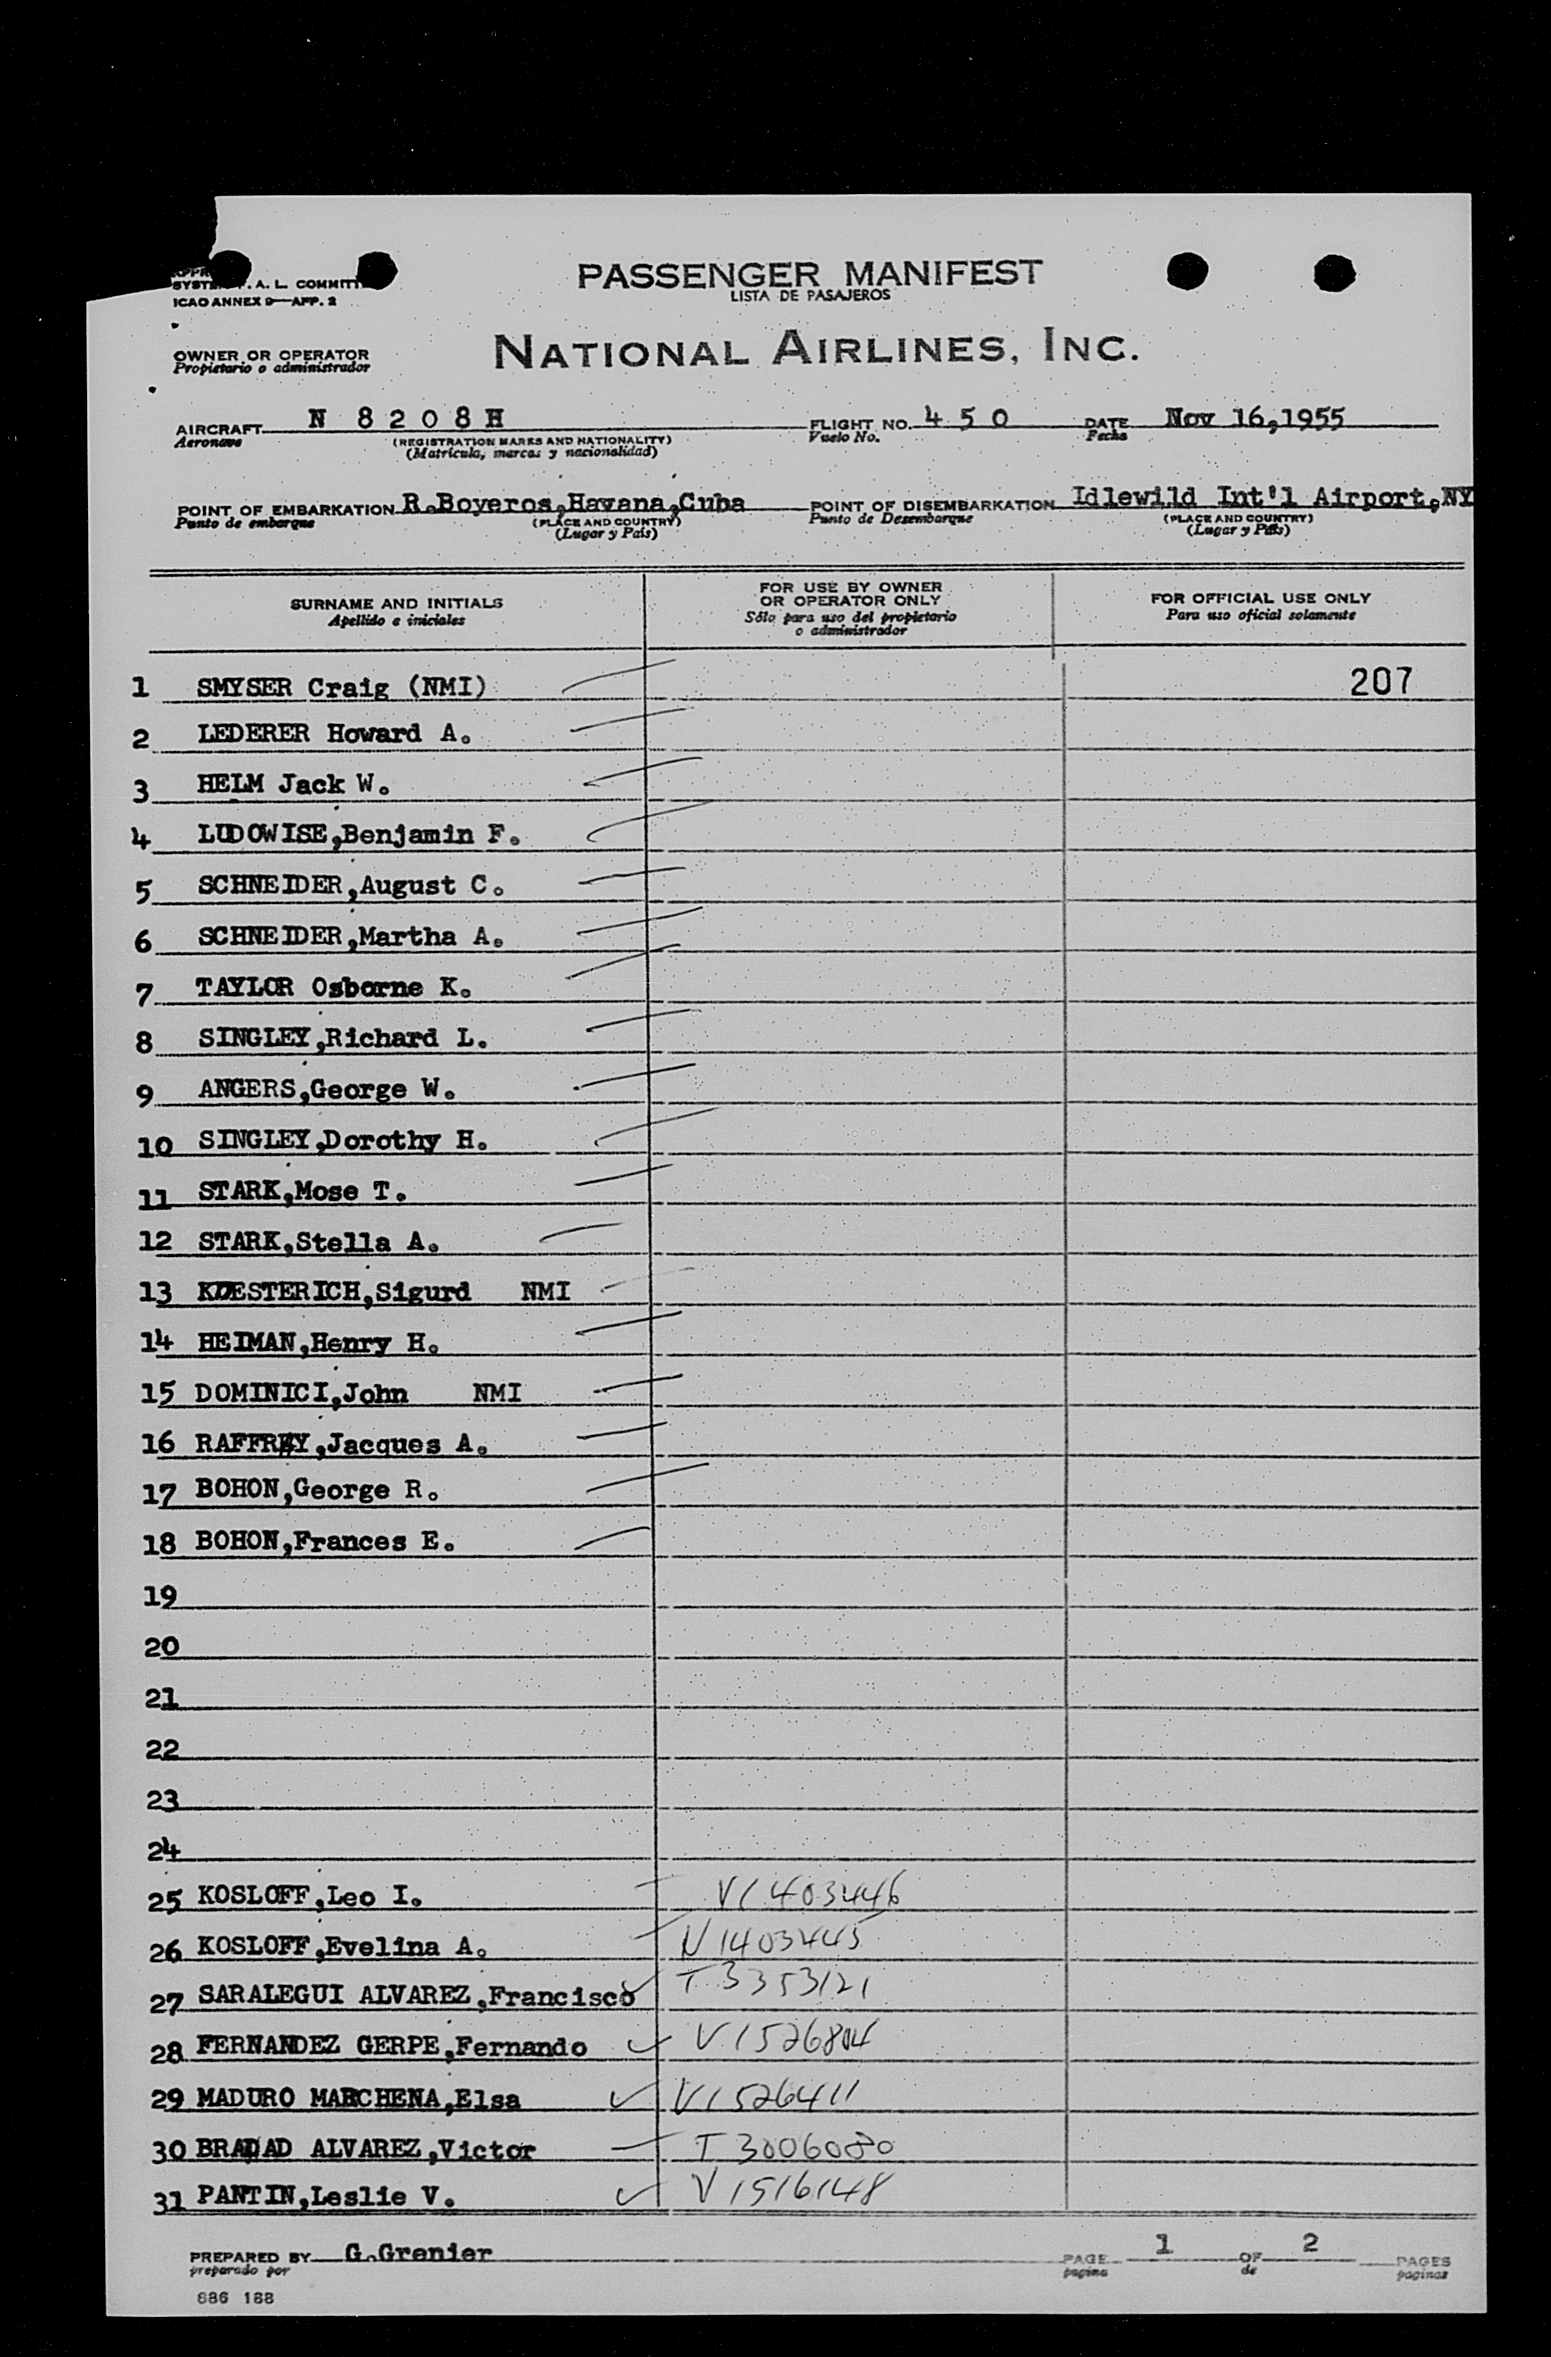 PASSENGER MANIFEST
LISTA DE PASAJEROS
A. L. COMMITT
ICAO ANNEX 9—APP. 2
OWNER OR OPERATOR
Propietario o administrador
NATIONAL AIRLINES, INC.
AIRCRAFT N 8 2 0 8 H FLIGHT NO. 4 5 0 DATE Nov 16,1955
Aeronave (REGISTRATION MARKS AND NATIONALITY) Vuelo No. Fecha
(Matricula, marcas y nacionalidad)
POINT OF EMBARKATION R.Boyeros,Havana,Cuba POINT OF DISEMBARKATION Idlewild Int'l Airport,NY
Punto de embarque (PLACE AND COUNTRY) Punto de Desembarque (PLACE AND COUNTRY)
(Lugar y País) (Lugar y País)
SURNAME AND INITIALS FOR USE BY OWNER OR OPERATOR ONLY FOR OFFICIAL USE ONLY
Apellido e iniciales Sólo para uso del propietario o administrador Para uso oficial solamente
1 SMYSER Craig (NMI) 207
2 LEDERER Howard A.
3 HELM Jack W.
4 LUDOWISE,Benjamin F.
5 SCHNEIDER,August C.
6 SCHNEIDER,Martha A.
7 TAYLOR Osborne K.
8 SINGLEY,Richard L.
9 ANGERS,George W.
10 SINGLEY,Dorothy H.
11 STARK,Mose T.
12 STARK,Stella A.
13 KOESTERICH,Sigurd NMI
14 HEIMAN,Henry H.
15 DOMINICI,John NMI
16 RAFFREY,Jacques A.
17 BOHON,George R.
18 BOHON,Frances E.
19
20
21
22
23
24
25 KOSLOFF,Leo I. V1403446
26 KOSLOFF,Evelina A. V1403445
27 SARALEGUI ALVAREZ,Francisco T3353121
28 FERNANDEZ GERPE,Fernando V1526804
29 MADURO MARCHENA,Elsa V1526411
30 ALVAREZ,Victor T3006080
31 PANTIN,Leslie V. V1516148
PREPARED BY G.Grenier PAGE 1 OF 2 PAGES
preparado por pagina de paginas
686 188